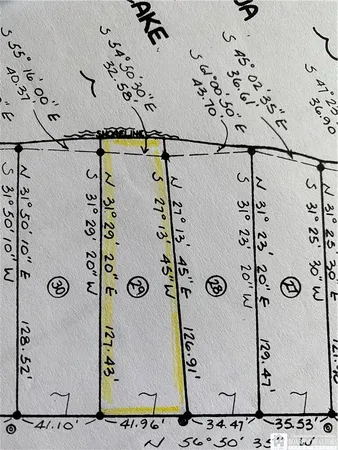 LAKE
UA
S 55° 16' 00" E
40.37'
S 54° 50' 30" E
32.58'
S 61° 00' 50" E
43.70'
S 45° 02' 35" E
36.61'
36.90
SHORELINE
N 31° 50' 10" E
S 31° 50' 10" W
128.52'
N 31° 29' 20" E
S 31° 29' 20" W
127.43'
N 27° 13' 45" E
S 27° 13' 45" W
126.91'
N 31° 23' 20" E
S 31° 23' 20" W
129.47'
N 31° 25' 30" E
S 31° 25' 30" W
30
29
28
27
41.10'
41.96'
34.47'
35.53'
N 56° 50' 35" W